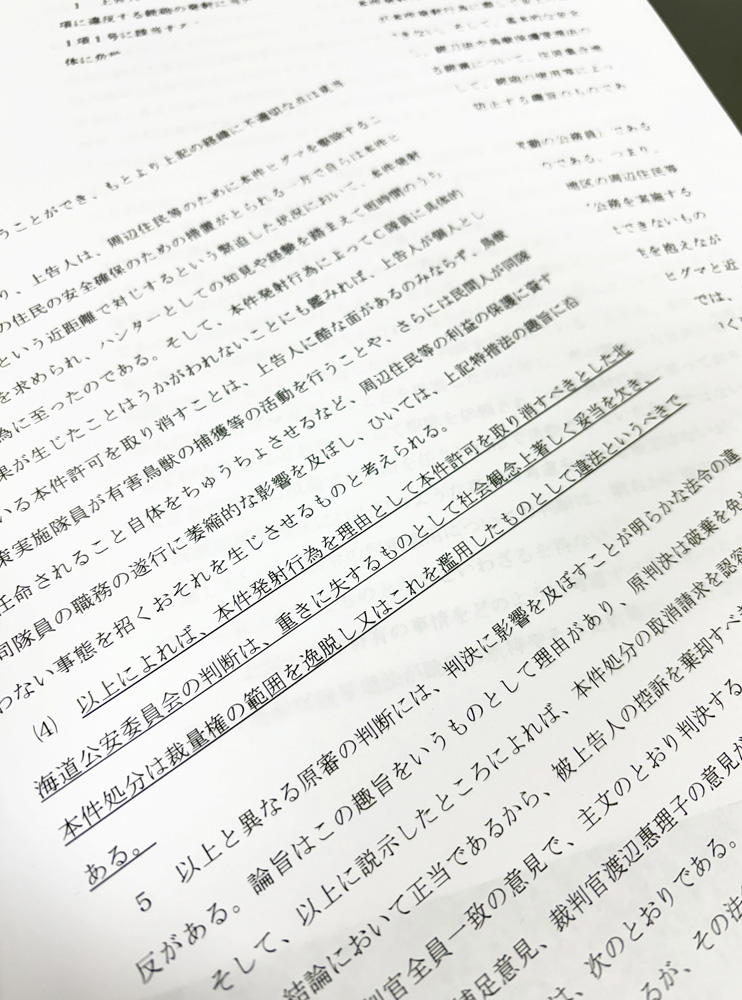 項に違反する銃砲の発射に当
1項1号に該当する
うことができ、もとより上記の経緯に不適切な点は見当
り、上告人は、周辺住民等のために本件ヒグマを駆除するこ
の住民の安全確保のための措置がとられる一方で自らは本件ヒ
という近距離で対じするという緊迫した状況において、本件発射
を求められ、ハンターとしての知見や経験を踏まえて短時間のうち
為に至ったのである。そして、本件発射行為によってC隊員に具体的
果が生じたことはうかがわれないことにも鑑みれば、上告人が個人とし
いる本件許可を取り消すことは、上告人に酷な面があるのみならず、鳥獣
策実施隊員が有害鳥獣の捕獲等の活動を行うことや、さらには民間人が同隊
任命されること自体をちゅうちょさせるなど、周辺住民等の利益の保護に資す
同隊員の職務の遂行に萎縮的な影響を及ぼし、ひいては、上記特措法の趣旨に沿
わない事態を招くおそれを生じさせるものと考えられる。
(4) 以上によれば、本件発射行為を理由として本件許可を取り消すべきとした北
海道公安委員会の判断は、重きに失するものとして社会観念上著しく妥当を欠き、
本件処分は裁量権の範囲を逸脱し又はこれを濫用したものとして違法というべきで
ある。
5 以上と異なる原審の判断には、判決に影響を及ぼすことが明らかな法令の違
反がある。論旨はこの趣旨をいうものとして理由があり、原判決は破棄を免
そして、以上に説示したところによれば、本件処分の取消請求を認容
結論において正当であるから、被上告人の控訴を棄却すべき
判官全員一致の意見で、主文のとおり判決する
補足意見、裁判官渡辺惠理子の意見が
は、次のとおりである。
るが、その法
防止する趣旨のものであ
動の公務員」である
のである。つまり、
地区の周辺住民等
公務を実施する
できないもの
を抱えなが
ヒグマと近
では、